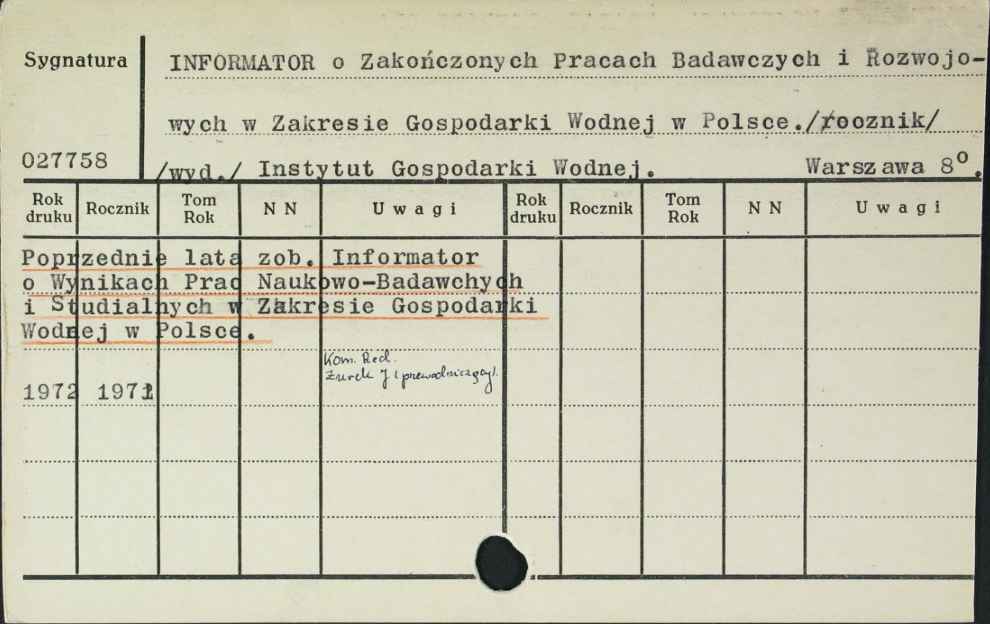 Sygnatura
INFORMATOR o Zakończonych Pracach Badawczych i Rozwojo-
wych w Zakresie Gospodarki Wodnej w Polsce./rocznik/
027758
/wyd./ Instytut Gospodarki Wodnej. Warszawa 8°.
Rok druku Rocznik Tom Rok N N Uwagi Rok druku Rocznik Tom Rok N N Uwagi
Poprzednie lata zob. Informator
o Wynikach Prac Naukowo-Badawchych
i Studialnych w Zakresie Gospodarki
Wodnej w Polsce.
Kom. Red.
Żurek J (przewodniczący).
1972 1971